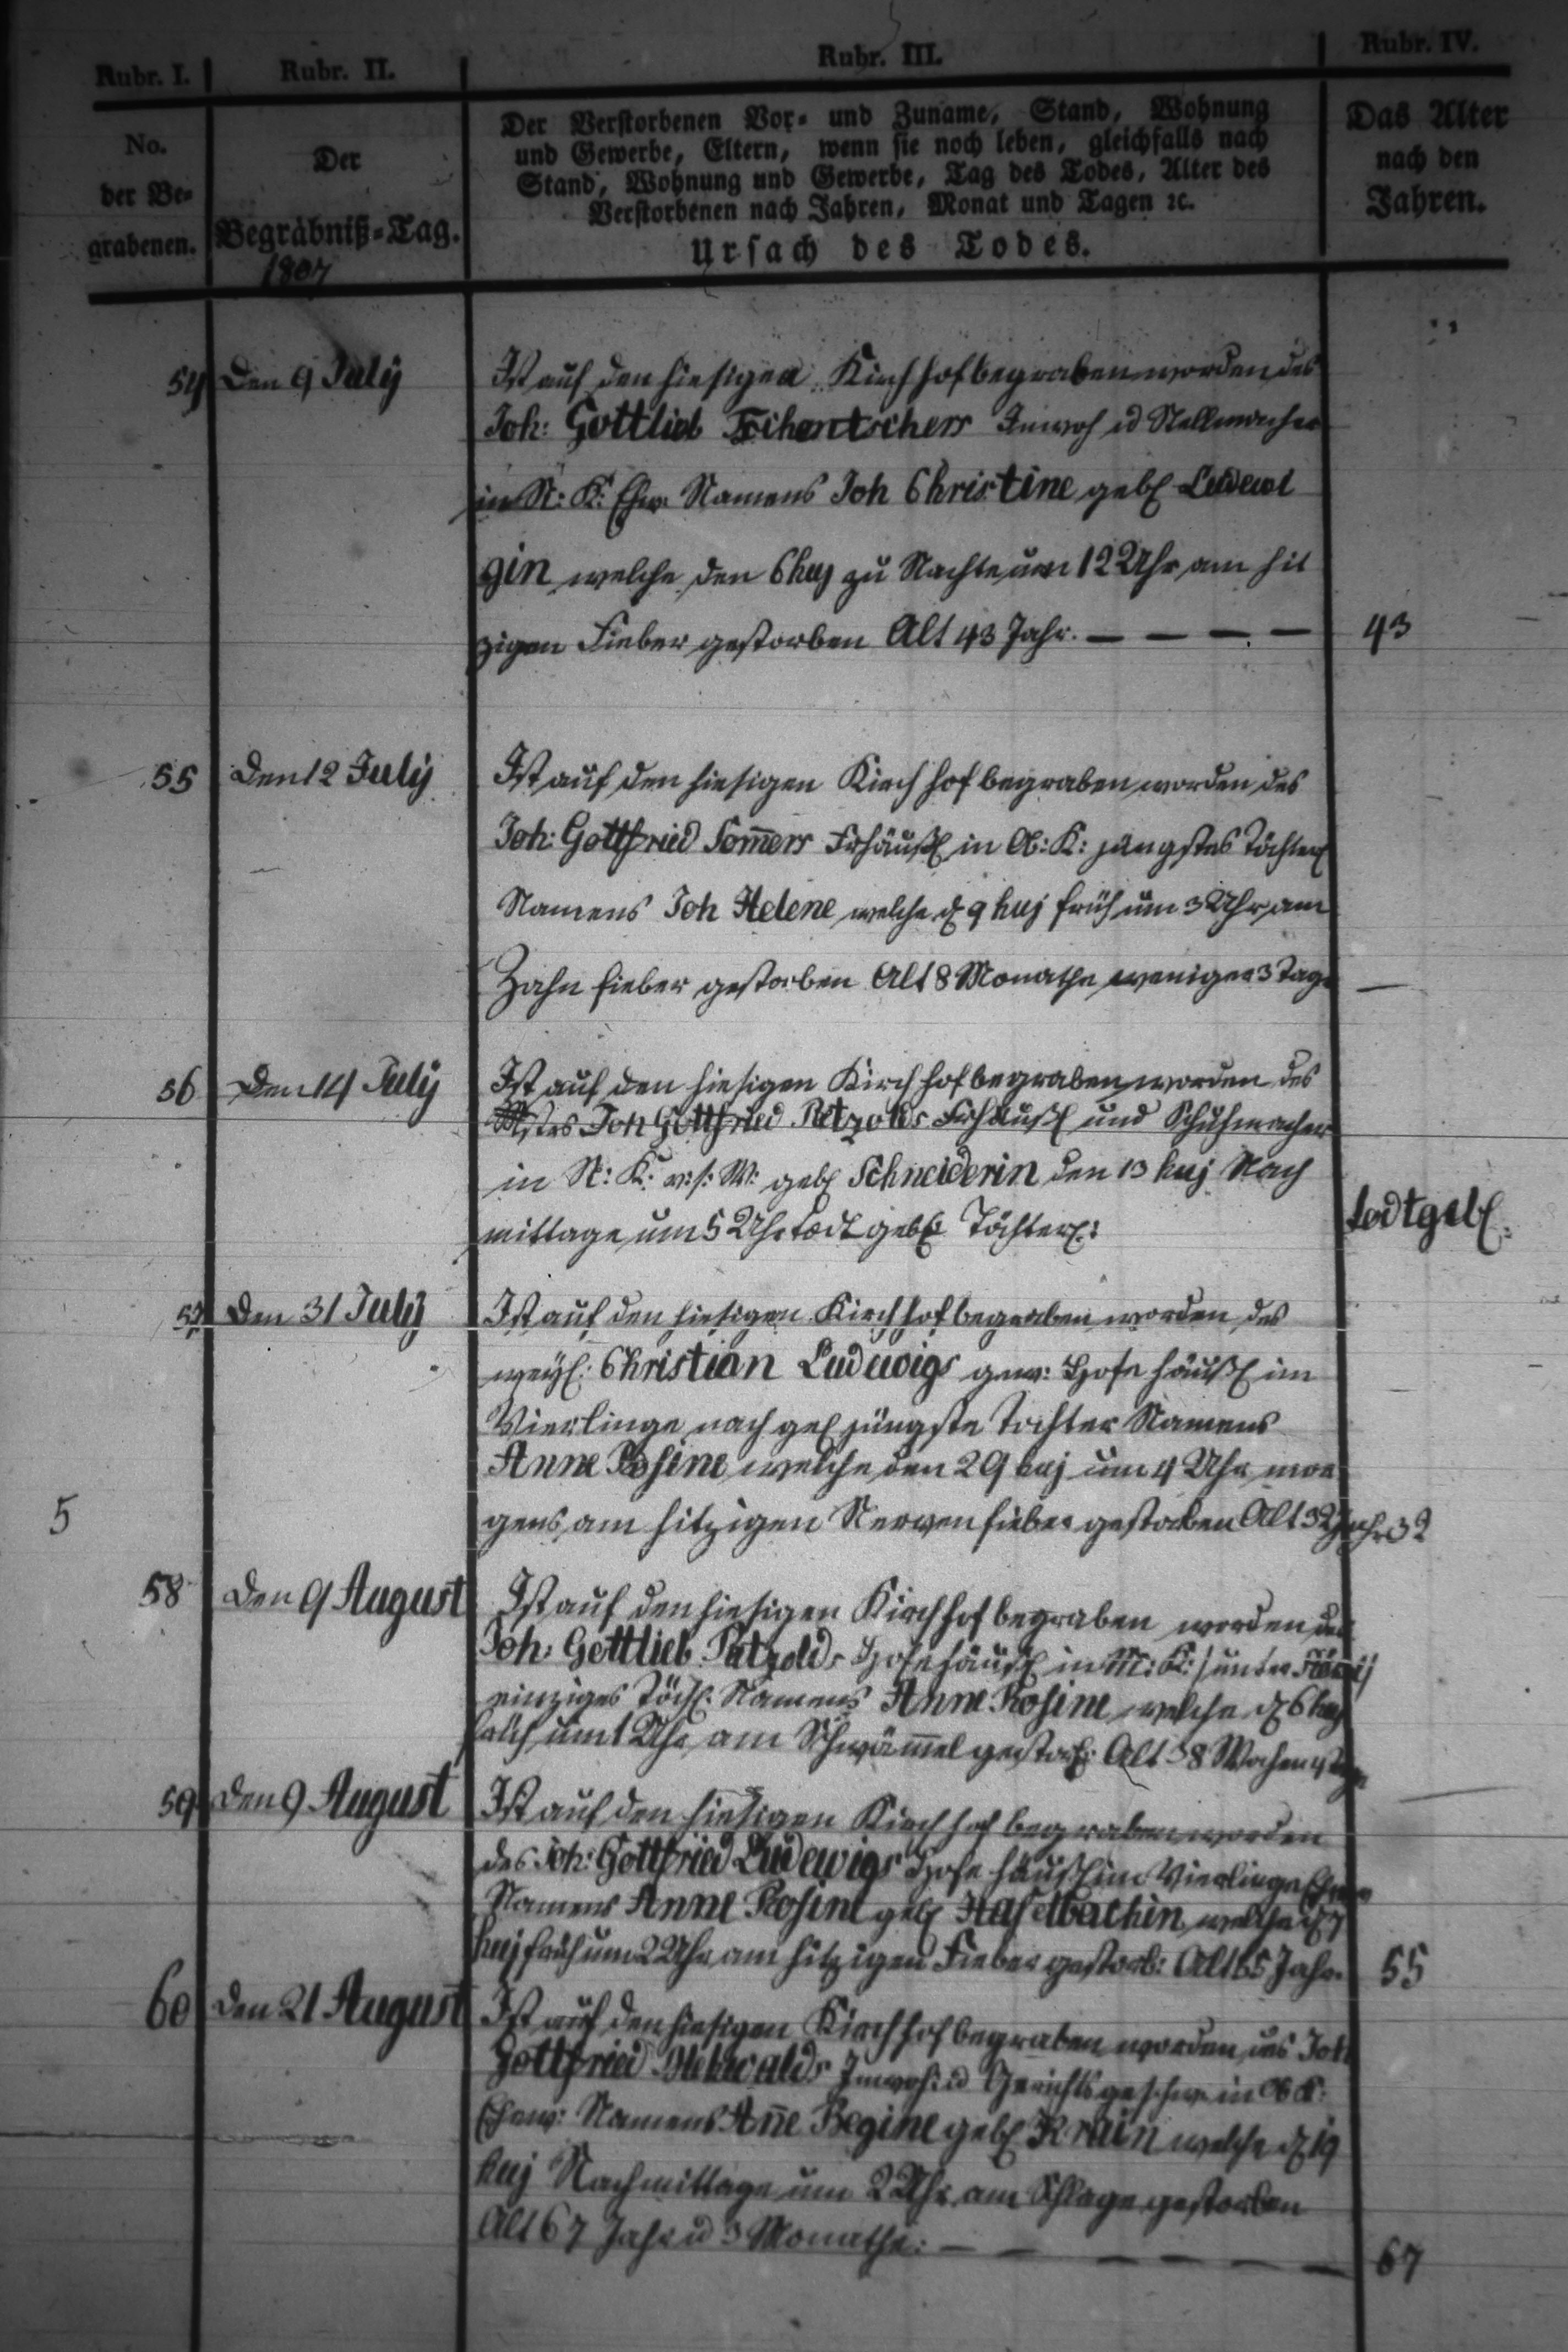 Rubr. I. Rubr. II. Rubr. III. Rubr. IV.
No.
der Be=
grabenen.
Der
Begräbniß=Tag.
1807
Der Verstorbenen Vor= und Zuname, Stand, Wohnung
und Gewerbe, Eltern, wenn sie noch leben, gleichfalls nach
Stand, Wohnung und Gewerbe, Tag des Todes, Alter des
Verstorbenen nach Jahren, Monat und Tagen ꝛc.
Ursach des Todes.
Das Alter
nach den
Jahren.
54 Den 9 July Ist auf den hiesigen Kirchhof begraben worden des
Joh: Gottlieb Inwoh u Stellmacher
in N: K: Ehw. Namens Joh Christine geb Ludewi
gin welche den 6 huj zu Nachte um 12 Uhr am hit
zigen Fieber gestorben Alt 43 Jahr. — — — — 43
55 Den 12 July Ist auf den hiesigen Kirchhof begraben worden des
Joh: Gottfried Som̄ers Frhäußl in Ob: K: jüngstes Töchterl
Namens Joh Helene welche d 9 huj früh um 3 Uhr am
Zahn fieber gestorben Alt 8 Monathe weniger 3 Tage —
56 Den 14 July Ist auf den hiesigen Kirchhof begraben worden des
Mstrs Joh Gottfried Petzolds Frhäußl und Schuhmacher
in N: K: v: s: W: geb Schneiderin den 13 huj Nach
mittage um 5 Uhr todt geb Töchterl: todtgeb:
57 Den 31 July Ist auf den hiesigen Kirchhof begraben worden des
weyl: Christian Ludewigs gew: Hofe häußl im
Vierlinge nach gel jüngste Tochter Namens
Anne Rosine welche den 29 huj um 4 Uhr mor
gens am hitzigen Nerven fieber gestorben Alt 32 Jahr 32
5
58 Den 9 August Ist auf den hiesigen Kirchhof begraben worden des
Joh: Gottlieb Patzolds Hofehäußl in M: K: /unter
einziges Töcht: Namens Anne Rosine welche d 6 huj
früh um 1 Uhr am Schwäm̄el gestorb: Alt 38 Wochen 4 Tage
59 Den 9 August Ist auf den hiesigen Kirchhof begraben worden —
des Joh: Gottfried Ludewigs Hofe häußl im Vierlinge
Namens Anne Rosine geb Haselbachin welche d 7
huj früh um 2 Uhr am hitzigen Fieber gestorb: Alt 55 Jahr. 55
60 Den 21 August Ist auf den hiesigen Kirchhof begraben worden des Joh
Gottfried Inwoh: u Gerichtsgeschw: in Ob K:
Ehew: Namens An̄e Regine geb Krain welche d 19
huj Nachmittage um 2 Uhr am Schlage gestorben
Alt 67 Jahr u 3 Monathe: — — — — — — 67